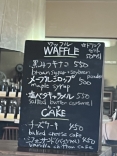 ワッフル
WAFFLE
黒みつきなこ 550
brown syrup + soybean powder
メープルシロップ 500
maple syrup
塩バタキャラメル 550
salted butter caramel
ケーキ
CAKE
チーズケーキ ¥450
baked cheese cake
¥450
vanilla chiffon cake